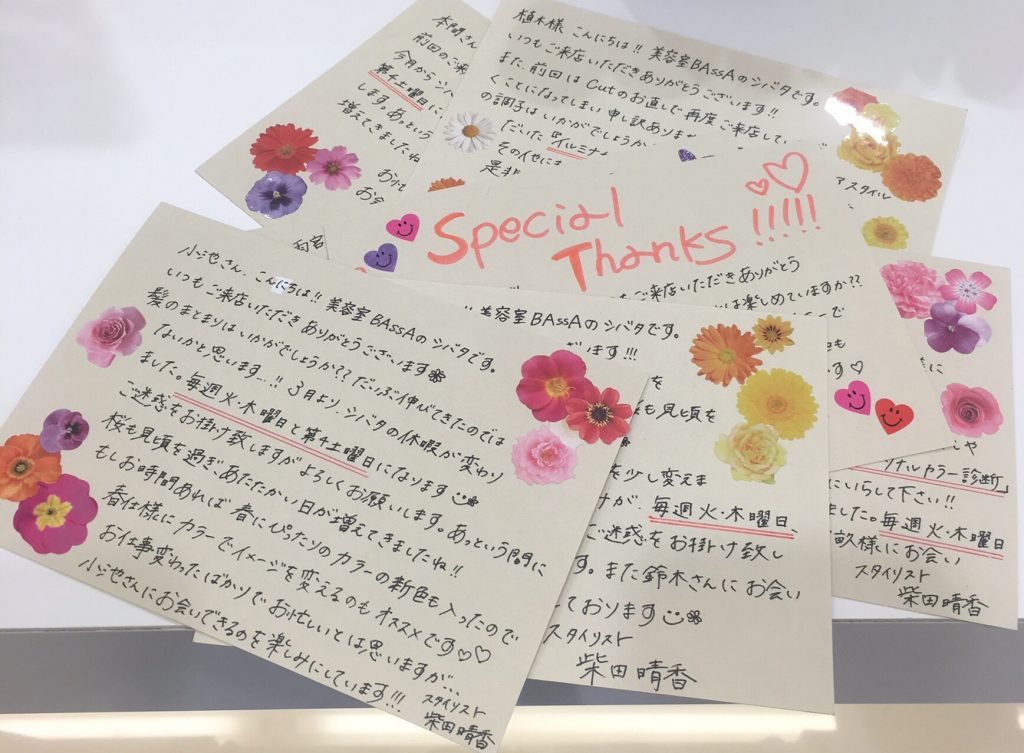 本間さん
前回のご来
今月から シバ
第4土曜日に
します。あっという
増えてきましたね
お忙
お会
植木様 こんにちは!! 美容室BAssAのシバタです。
いつもご来店いただきありがとうございます!!
また、前回は Cutのお直しで再度ご来店して
くことになってしまい 申し訳ありま
の調子はいかがでしょうか
だいた『イルミナ
その他には
是非
スタイル
Special
Thanks !!!!!
もご来店いただきありがとう
は楽しめていますか??
で
も
す♡
小池さん、こんにちは!! 美容室BAssAの シバタです。
いつもご来店いただき ありがとうございます
髪のまとまりはいかがでしょうか?? だいぶ伸びてきたのでは
ないかと思います...!! 3月より、シバタの休暇が変わり
ました。毎週火・木曜日と第4土曜日になります
ご迷惑をお掛け致しますがよろしくお願いします。あっという間に
桜も見頃を過ぎあたたかい日が増えてきましたね!!
もしお時間あれば 春にぴったりのカラーの新色も入ったので
春仕様にカラーでイメージを変えるのもオススメです♡♡
お仕事変わったばかりで お忙しいとは思いますが...
小池さんにお会いできるのを楽しみにしています!!!
スタイリスト
柴田晴香
!! 美容室BAssAのシバタです。
ざいます!!!
を
も見頃を
を少し変えま
すが、毎週火・木曜日、
ご迷惑をお掛け致し
す。また鈴木さんにお会い
ております
スタイリスト
柴田晴香
に
しや
ソナルカラー診断」
にいらして下さい!!
ました。毎週火・木曜日
様にお会い
スタイリスト
柴田晴香